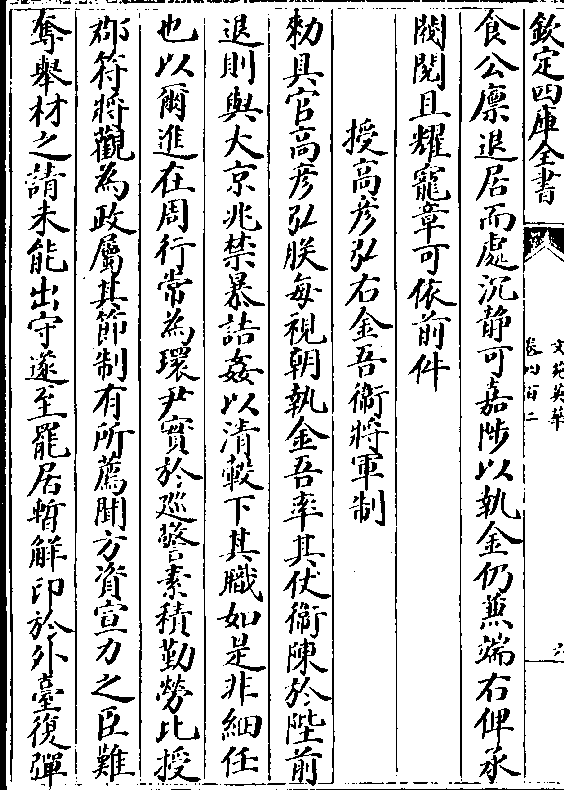 欽定四庫全書
文苑英華
卷四百二
食公廪退居而處沉静可嘉陟以執金仍兼端右俾承
閥閱且耀寵章可依前件
授高彦弘右金吾衞將軍制
勅具官高彦弘朕每視朝執金吾率其仗衞陳於陛前
退則與大京兆禁暴詰姦以清轂下其職如是非細任
也以爾進在周行常為環尹實於廵警素積勤勞比授
郡符將觀為政屬其節制有所薦聞方資宣力之臣難
奪舉材之請未能出守遂至罷居暫解印於外臺復彈